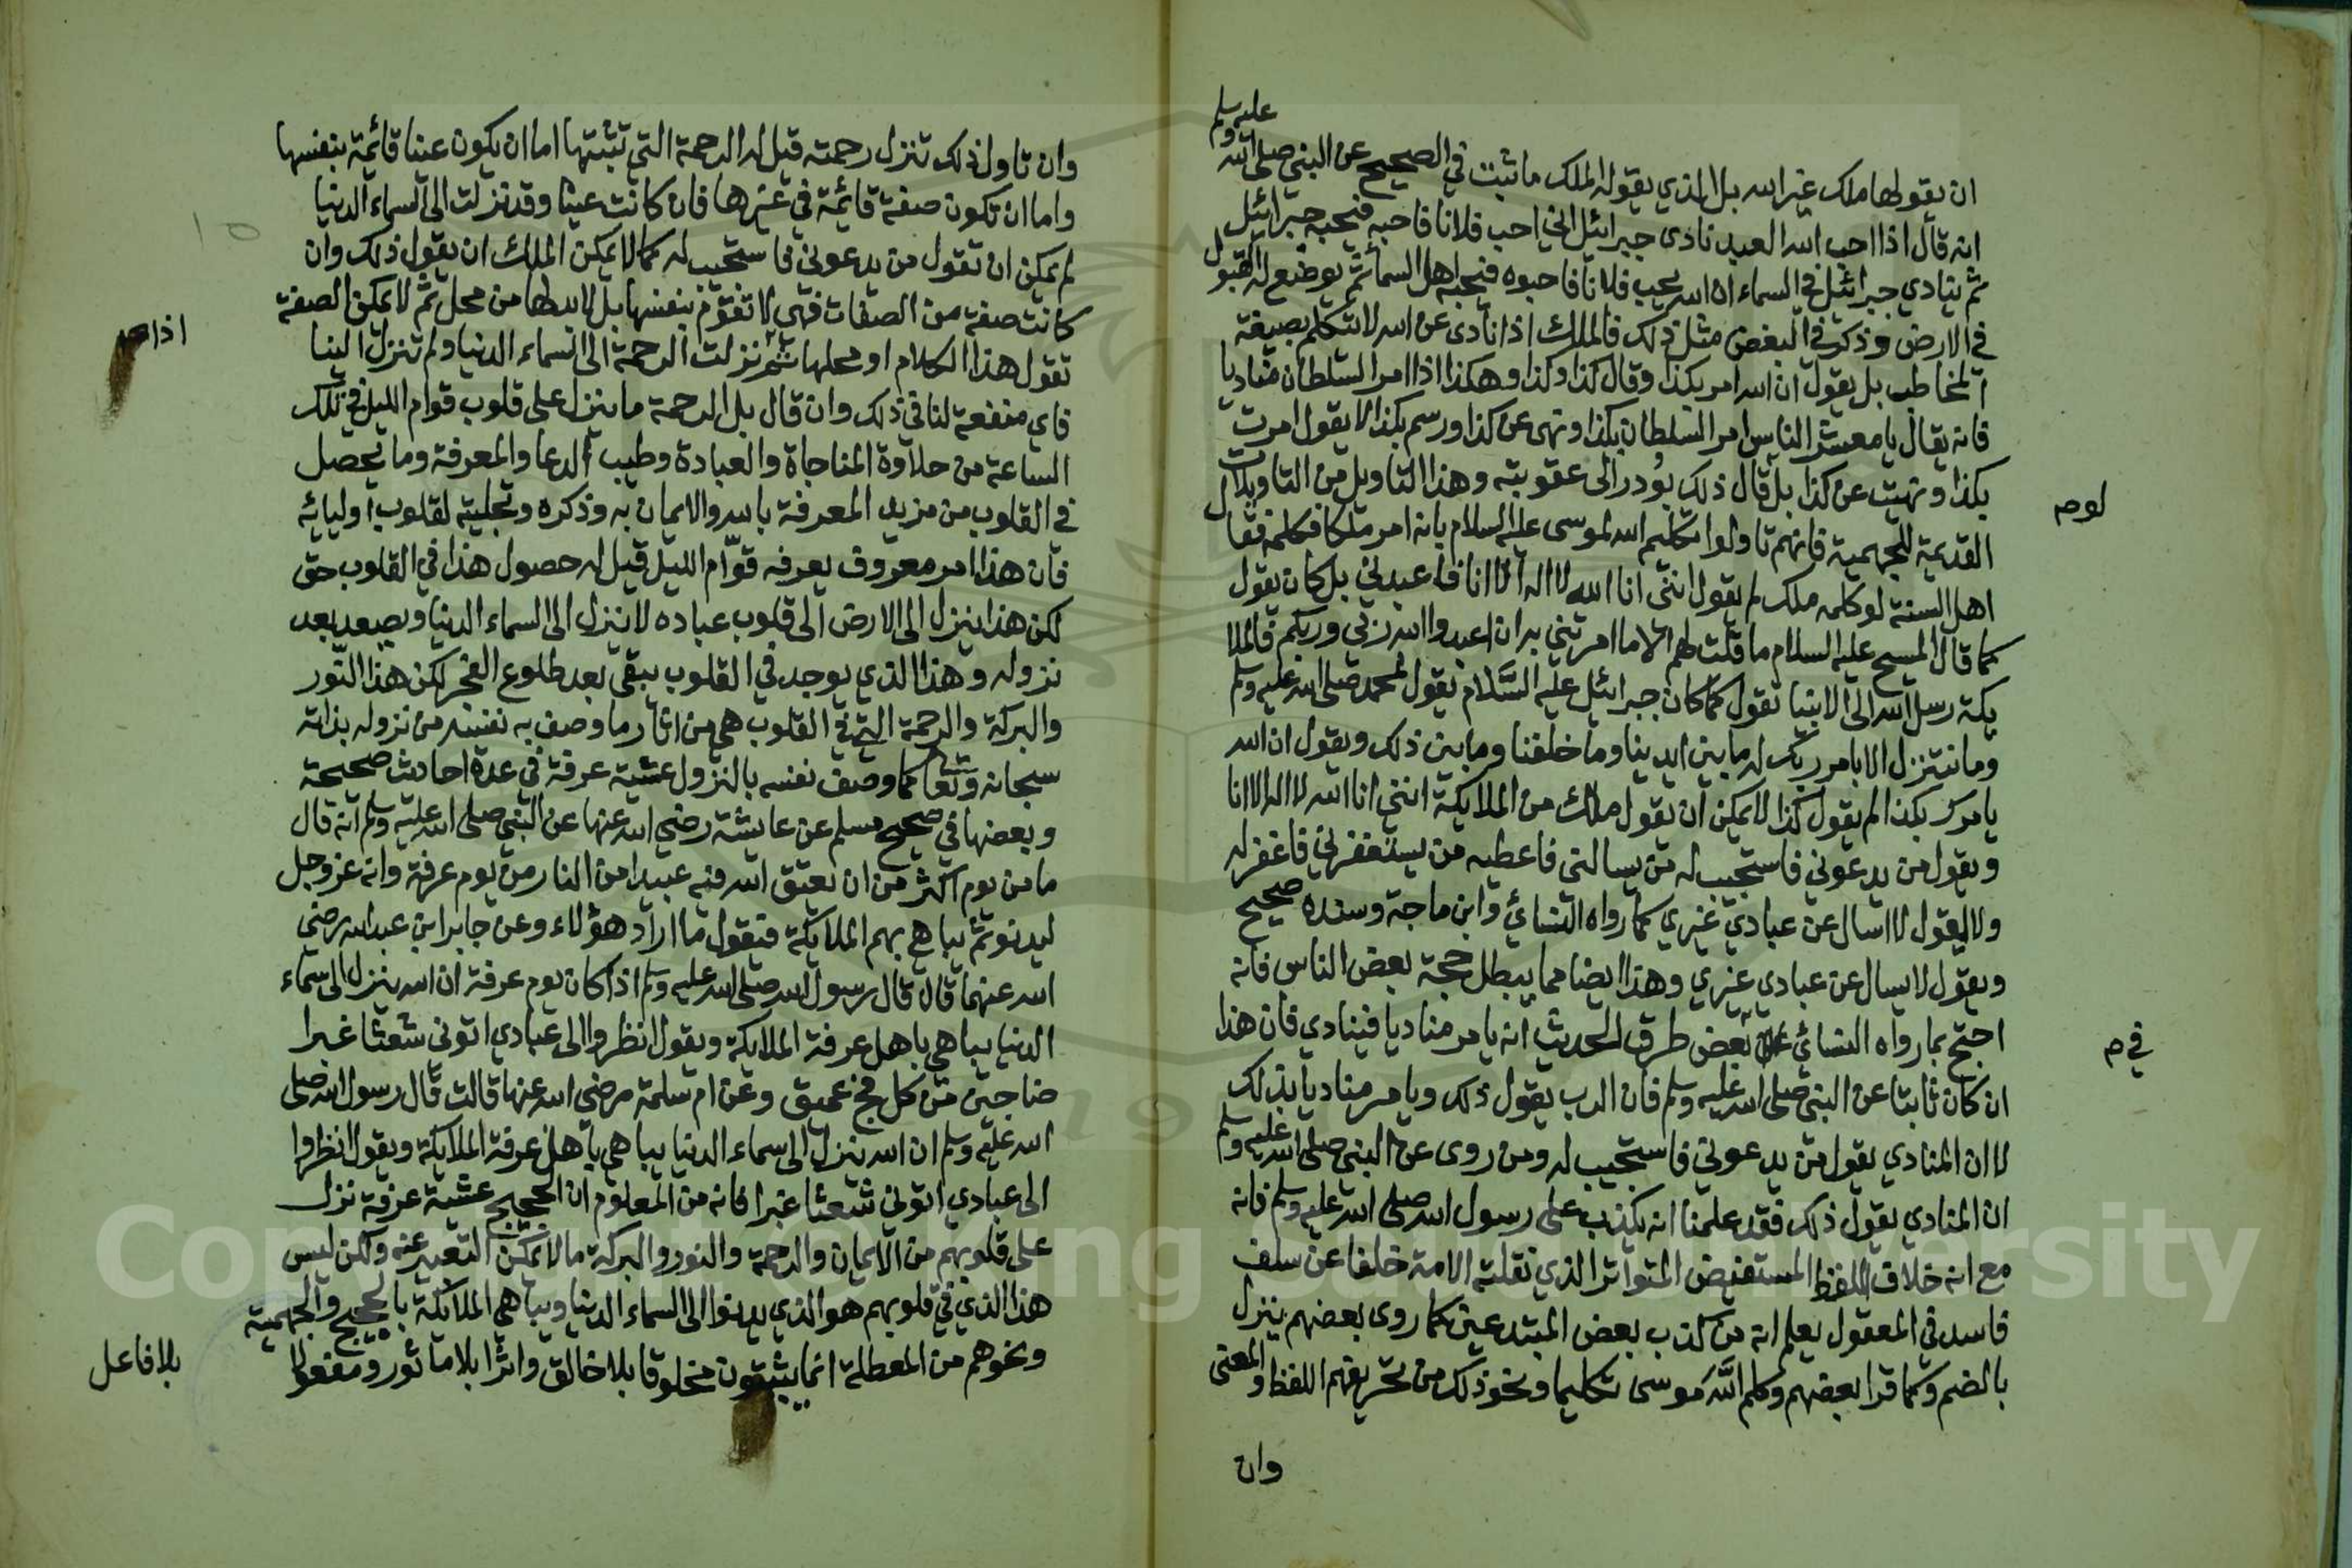 عليه وسلم
ان يقولها ملك غير الله بل الذي يقوله الملك ما ثبت في الصحيح عن النبي صلى الله
انه قال اذا احب الله العبد نادى جبرائيل اني احب فلانا فاحبه فيحبه جبرائيل
ثم ينادي جبرائيل في السماء ان الله يحب فلانا فاحبوه فيحبه اهل السماء ثم يوضع له القبول
في الارض وذكر في البغض مثل ذلك فالملك اذا نادى عن الله لا يتكلم بصيغة
المخاطب بل يقول ان الله امر بكذا وقال كذا وكذا وهكذا اذا امر السلطان مناديا
فانه يقال يا معشر الناس امر السلطان بكذا ونهى عن كذا ورسم بكذا لا يقول امرت
بكذا ونهيت عن كذا بل قال ذلك بودر الى عقوبته وهذا التاويل من التاويلات
لو م
القديمة للجهمية فانهم تاولوا تكليم الله لموسى عليه السلام بانه امر ملكا فكلمه فقال
اهل السنة لو كلمه ملك لم يقول انني انا الله لا اله الا انا فاعبدني بل كان يقول
كما قال المسيح عليه السلام ما قلت لهم الا ما امرتني به ان اعبدوا الله ربي وربكم فالملا
يكة رسل الله الى الانبيا تقول كما كان جبرائيل عليه السلام يقول لمحمد صلى الله عليه وسلم
وما نتنزل الا بامر ربك له ما بين ايدينا وما خلفنا وما بين ذلك ويقول ان الله
يامرك بكذا لم يقول كذا لا يمكن ان يقول ملك من الملايكة انني انا الله لا اله الا انا
ويقول من يدعوني فاستجيب له من يسالني فاعطيه من يستغفرني فاغفر له
ولا يقول لا اسال عن عبادي غيري كما رواه النسائي وابن ماجة وسنده صحيح
ويقول لا يسال عن عبادي غيري وهذا ايضا مما يبطل حجة بعض الناس فانه
احتج بما رواه النسائي بعض طرق الحديث انه يامر مناديا فينادي فان هذا
في م
ان كان ثابتا عن النبي صلى الله عليه وسلم فان الرب يقول ذلك ويامر مناديا بذلك
لا ان المنادي يقول من يدعوني فاستجيب له ومن روى عن النبي صلى الله عليه وسلم
ان المنادي يقول ذلك فقد علمنا انه يكذب على رسول الله صلى الله عليه وسلم فانه
مع انه خلاف اللفظ المستفيض المتواتر الذي نقلته الامة خلفا عن سلف
فاسد في المعقول يعلم انه من كذب بعض المبتدعين كما روى بعضهم ينزل
بالضم وكما قرا بعضهم وكلم الله موسى تكليما ونحو ذلك من تحريفهم اللفظ والمعنى
وان
وان تاول ذلك تنزل رحمته قيل له الرحمة التي تثبتها اما ان يكون عينا قائمة بنفسها
واما ان تكون صفة قائمة في غيرها فان كانت عينا وقد نزلت الى السماء الدنيا
لم يمكن ان تقول من يدعوني فاستجيب له كما لا يمكن الملك ان يقول ذلك وان
كانت صفة من الصفات فهي لا تقوم بنفسها بل لا بد لها من محل ثم لا يمكن الصفة
تقول هذا الكلام او محلها ثم نزلت الرحمة الى السماء الدنيا ولم تنزل الينا
اذا
فاي منفعة لنا في ذلك وان قال بل الرحمة ما ينزل على قلوب قوام الليل في تلك
الساعة من حلاوة المناجاة والعبادة وطيب الدعا والمعرفة وما يحصل
في القلوب من مزيد المعرفة بالله والايمان به وذكره وتجليته لقلوب اوليائه
فان هذا امر معروف يعرفه قوام الليل قيل له حصول هذا في القلوب حق
لكن هذا ينزل الى الارض الى قلوب عباده لا ينزل الى السماء الدنيا ويصعد بعد
نزوله وهذا الذي يوجد في القلوب يبقى بعد طلوع الفجر لكن هذا النور
والبركة والرحمة التي في القلوب هي من اثار ما وصف به نفسه من نزوله بذاته
سبحانه وتعالى كما وصف نفسه بالنزول عشية عرفة في عدة احاديث صحيحة
وبعضها في صحيح مسلم عن عايشة رضي الله عنها عن النبي صلى الله عليه وسلم انه قال
ما من يوم اكثر من ان يعتق الله فيه عبيدا من النار من يوم عرفة وانه عز وجل
ليدنو ثم يباهي بهم الملايكة فيقول ما اراد هؤلاء وعن جابر ابن عبد الله رضي
الله عنهما قال قال رسول الله صلى الله عليه وسلم اذا كان يوم عرفة ان الله ينزل الى سماء
الدنيا يباهي باهل عرفة الملايكة ويقول انظروا الى عبادي اتوني شعثا غبرا
ضاجين من كل فج عميق وعن ام سلمة رضي الله عنها قالت قال رسول الله صلى
الله عليه وسلم ان الله ينزل الى سماء الدنيا يباهي باهل عرفة الملايكة ويقول انظروا
الى عبادي اتوني شعثا غبرا فانه من المعلوم ان الحجيج عشية عرفة نزل
على قلوبهم من الايمان والرحمة والنور والبركة ما لا يمكن التعبير عنه ولكن ليس
هذا الذي في قلوبهم هو الذي يدنوا الى السماء الدنيا ويباهي الملائكة بالحجيج والجهمية
ونحوهم من المعطلة انما يثبتون مخلوقا بلا خالق واثرا بلا ماثور ومفعولا
بلا فاعل
Copyright © King Saud University